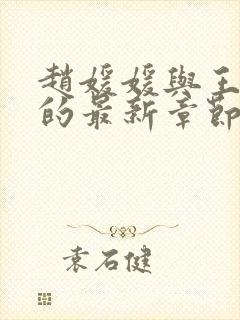 趙媛媛與王
的最新章節
袁石健